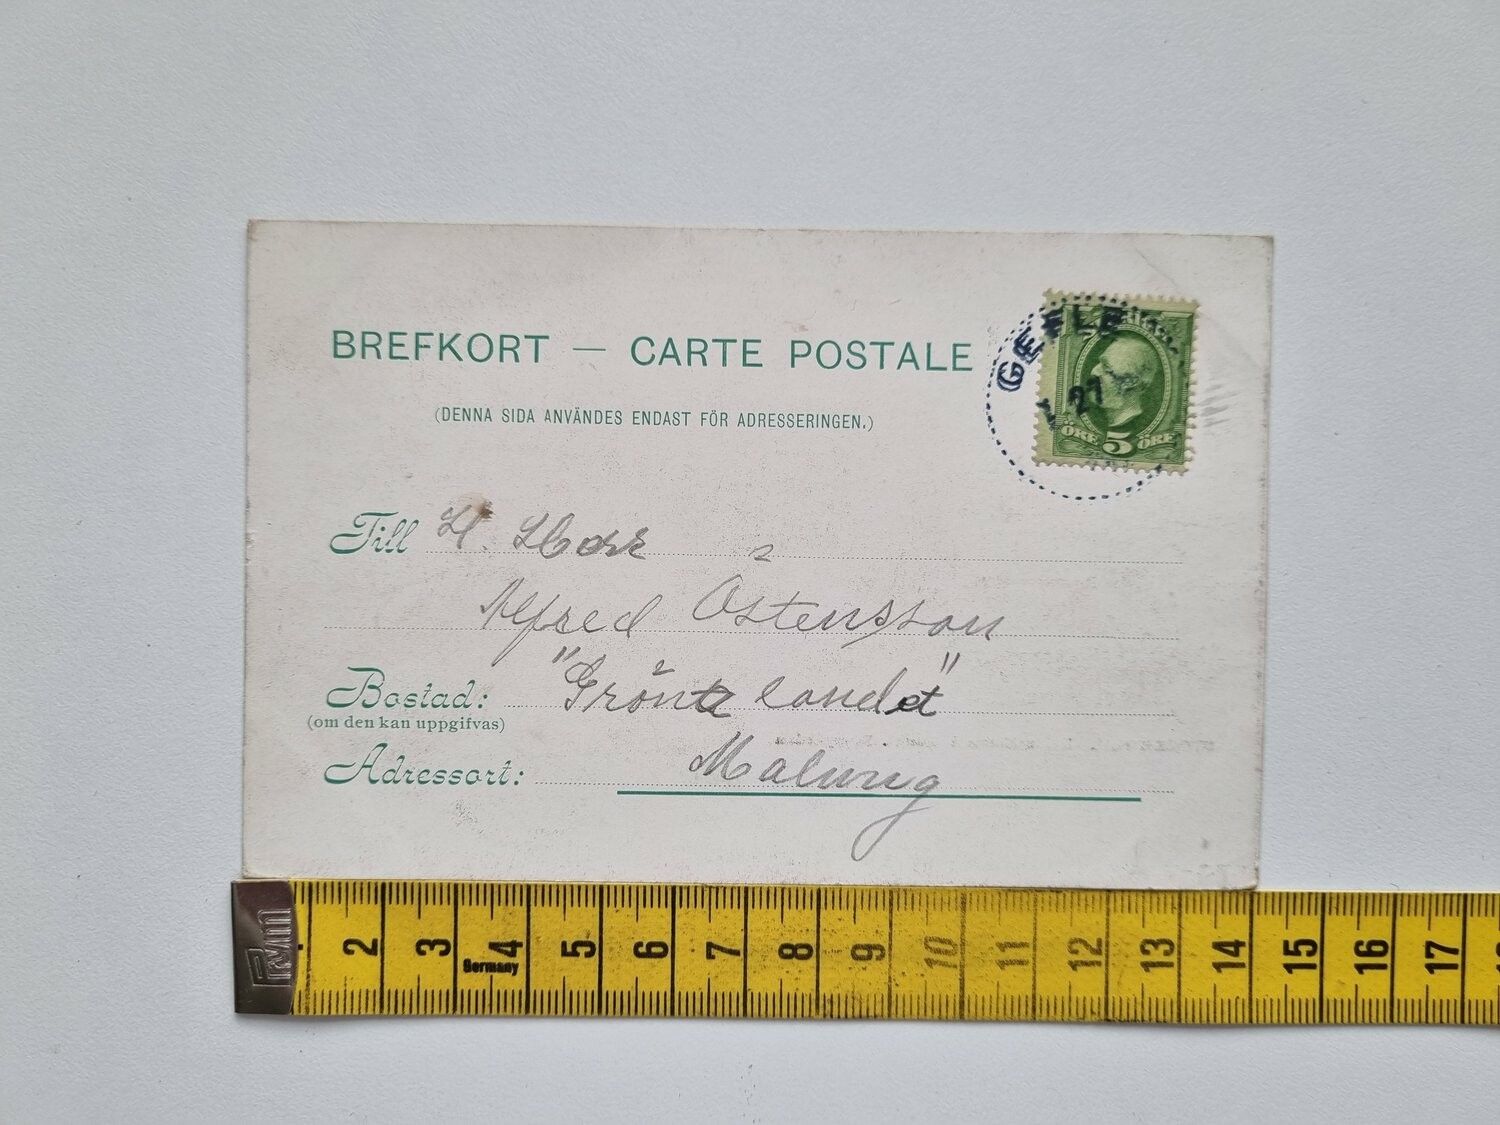 BREFKORT — CARTE POSTALE
(DENNA SIDA ANVÄNDES ENDAST FÖR ADRESSERINGEN.)
GEFLE
27
ÖRE 5 ÖRE
Till H.
Alfred Östensson
Bostad: "Gröna landet"
(om den kan uppgifvas)
Adressort: Malung
Prym
2 3 4 5 6 7 8 9 10 11 12 13 14 15 16 17
Germany